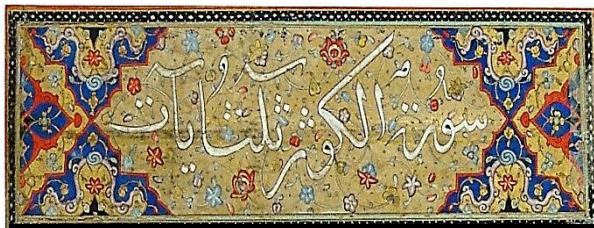 سورة الكوثر ثلث ايات